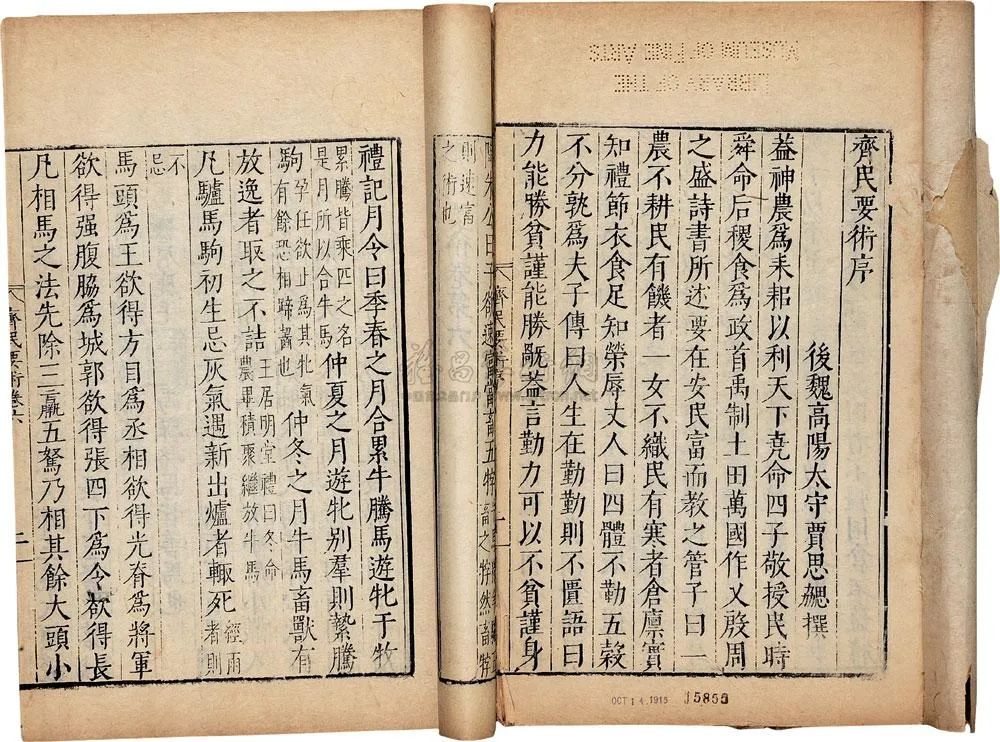 LIBRARY OF THE
MUSEUM OF FINE ARTS
齊民要術序
後魏高陽太守賈思勰撰
葢神農爲耒耜以利天下堯命四子敬授民時
舜命后稷食爲政首禹制土田萬國作乂殷周
之盛詩書所述要在安民富而教之管子曰一
農不耕民有饑者一女不織民有寒者倉廩實
知禮節衣食足知榮辱丈人曰四體不勤五穀
不分孰爲夫子傳曰人生在勤勤則不匱語曰
力能勝貧謹能勝旤葢言勤力可以不貧謹身
齊民要術序
OCT 14 1915
15855
畜五牸
畜之牸然畜牸
則速富
之術也
禮記月令曰季春之月合累牛騰馬遊牝于牧
累騰皆乘匹之名是月所以合牛馬仲夏之月遊牝别羣則縶騰
駒孕任欲止爲其牝氣有餘恐相蹄齧也仲冬之月牛馬畜獸有
放逸者取之不詰王居明堂禮曰冬命農畢積聚繼放牛馬
凡驢馬駒初生忌灰氣遇新出爐者輒死經雨者則
不忌
馬頭爲王欲得方目爲丞相欲得光脊爲將軍
欲得强腹脇爲城郭欲得張四下爲令欲得長
凡相馬之法先除三羸五駑乃相其餘大頭小
齊民要術卷六
二